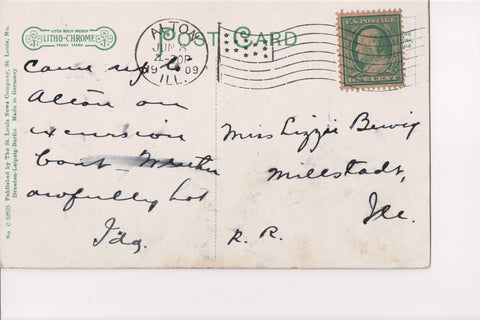 LITHO-CHROME
TRADE MARK
POST CARD
ALTON
JUN
1909
ILL.
U.S. POSTAGE
ONE CENT
No. C 6898 Published by The St. Louis News Company, St. Louis, Mo.
Dresden-Leipzig-Berlin Made in Germany
Came up to
Alton on
excursion
boat - Weather
awfully hot
Ida.
Miss Lizzie Bewig
Millstadt,
Ill.
R. R.